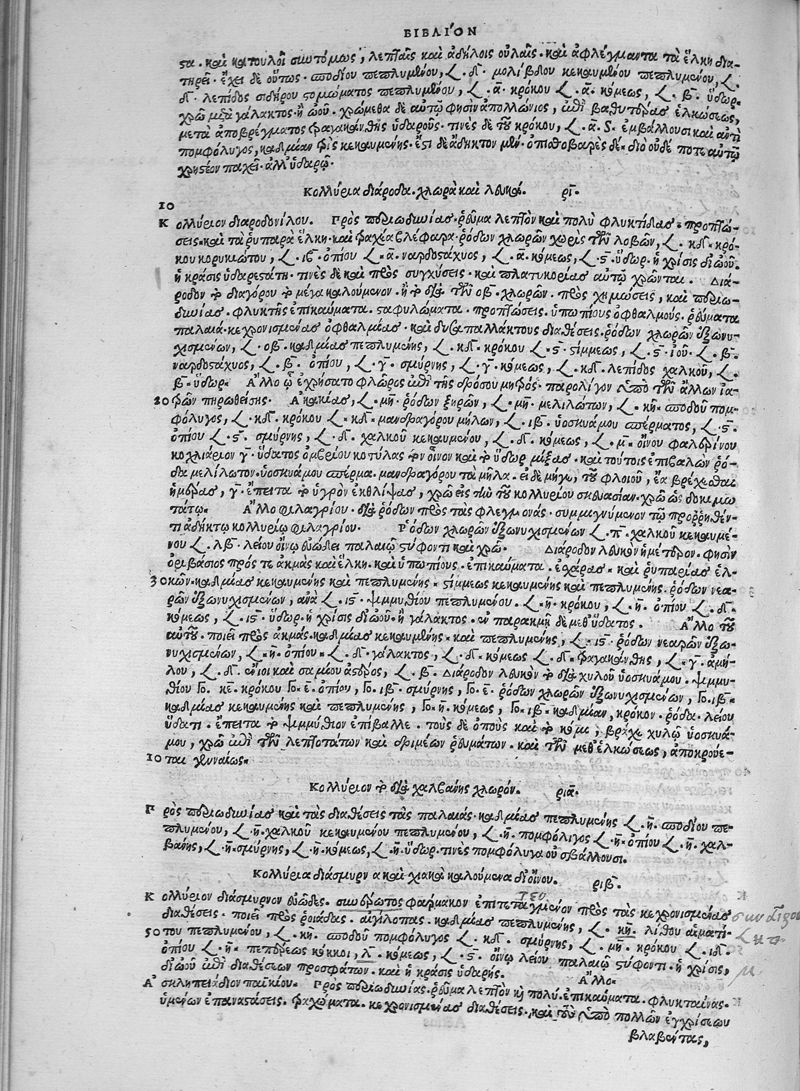 ΒΙΒΛΙΟΝ
ϛα. καὶ κατουλοῖ συντόμως, λεπταῖς καὶ ἀδήλοις οὐλαῖς. καὶ ἀφλέγμαντα τὰ ἕλκη δια-
τηρεῖ. ἔχει δὲ οὕτως. σποδίου πεπλυμένου, 𐅻. δ. μολίβδου κεκαυμένου πεπλυμένου, 𐅻.
δ. λεπίδος σιδήρου στομώματος πεπλυμένου, 𐅻. α. κρόκου 𐅻. α. κόμεως, 𐅻. β. ὕδωρ.
χρῶ μετὰ γάλακτος ἢ ὠοῦ. χρώμεθα δὲ αὐτῷ φησὶν ἀπολλώνιος, ἐπὶ βαθυτέρας ἑλκώσεως,
μετὰ ἀποβρέγματος τραγακάνθης ὑδαροῦς. τινὲς δὲ τοῦ κρόκου, 𐅻. α. ϛ. ἐμβάλλουσι καὶ ἀντὶ
πομφόλυγος, καδμίαν τῆς κεκαυμένης. ἔστι δὲ ἄδηκτον μὲν. ὀπισθοβαρὲς δὲ. διὸ οὐδέ ποτε αὐτῷ
χρηστέον παχεῖ. ἀλλ' ὑδαρῷ.
Κολλύρια διάροδα. χλωρὰ καὶ λευκά. ρι.
10
Κολλύριον διαρόδον νείλου. Πρὸς περιωδυνίας. ῥεῦμα λεπτὸν καὶ πολὺ φλυκτίδας. προπτώ-
σεις. καὶ τὰ ῥυπαρὰ ἕλκη. καὶ τραχέα βλέφαρα. ῥόδων χλωρῶν χωρὶς τῶν λοβῶν, 𐅻. κδ. κρό-
κου κορυκιώτου, 𐅻. ιϛ. ὀπίου 𐅻. α. ναρδοστάχυος, 𐅻. α. κόμεως, 𐅻. ϛ. ὕδωρ. ἡ χρῖσις δι' ὠοῦ.
ἡ κρᾶσις ὑδαρεστάτη. τινὲς δὲ καὶ πρὸς συγχύσεις. καὶ πλατυκορίας αὐτῷ χρῶνται. Διά-
ροδον τὸ διαγόρου τὸ μέγα καλούμενον. ἢ τὸ διὰ τῶν οβ. χλωρῶν. πρὸς χημώσεις, καὶ περιω-
δυνίας. φλυκτὶς ἐπικαύματα. σταφυλώματα. προπτώσεις. ὑπωπίους ὀφθαλμούς. ῥεύματα
παλαιά. κεχρονισμένας ὀφθαλμίας. καὶ δυσαπαλλάκτους διαθέσεις. ῥόδων χλωρῶν ἐξωνυ-
χισμένων, 𐅻. οβ. καδμίας πεπλυμένης, 𐅻. κδ. κρόκου 𐅻. ϛ. στίμμεως, 𐅻. ϛ. ἰοῦ. 𐅻. β.
ναρδοστάχυος, 𐅻. β. ὀπίου, 𐅻. γ. σμύρνης, 𐅻. γ. κόμεως, 𐅻. κδ. λεπίδος χαλκοῦ, 𐅻.
β. ὕδωρ. Ἄλλο ᾧ ἐχρήσατο φλῶρος ἐπὶ τῆς δρόσου μητρός. παρ' ὀλίγον ὑπὸ τῶν ἄλλων ἰα-
20 τρῶν πηρωθείσης. Ἀκακίας, 𐅻. μη. ῥόδων ξηρῶν, 𐅻. μη. μελιλώτων, 𐅻. κη. σποδοῦ πομ-
φόλυγος, 𐅻. κδ. κρόκου 𐅻 κδ. μανδραγόρου μήλων, 𐅻. ιβ. ὑοσκυάμου σπέρματος, 𐅻. ϛ.
ὀπίου 𐅻. ϛ. σμύρνης, 𐅻. δ. χαλκοῦ κεκαυμένου, 𐅻. δ. κόμεως, 𐅻. μ. οἴνου φαλερίνου
κοχλιάριον γ. ὕδατος ὀμβρίου κοτύλας τὸν οἶνον καὶ τὸ ὕδωρ μίξας. καὶ τούτοις ἐπιβαλὼν ῥό-
δα μελίλωτον. ὑοσκυάμου σπέρμα. μανδραγόρου τὰ μῆλα. εἰ δὲ μήγε, τοῦ φλοιοῦ, ἔα βρέχεσθαι
ἡμέρας, γ. ἔπειτα τὸ ὑγρὸν ἐκθλίψας, χρῶ εἰς τὴν τοῦ κολλυρίου σκευασίαν. χρῶ ὡς δοκιμω
τάτῳ. Ἄλλο φιλαγρίου. διὰ ῥόδων πρὸς τὰς φλεγμονάς. συμμιγνύμενον τῷ προρρηθέν-
τι ἀδήκτῳ κολλυρίῳ φιλαγρίου. Ῥόδων χλωρῶν ἐξωνυχισμένων 𐅻. π. χαλκοῦ κεκαυμέ-
νου 𐅻. λβ. λείου οἴνῳ εὐώδει παλαιῷ στύφοντι καὶ χρῶ. Διάροδον λευκὸν ἡμέτερον. φησὶν
ὀριβάσιος πρός τε ἀκμὰς καὶ ἕλκη. καὶ ὑπωπίους. ἐπικαύματα. ἐσχάρας. καὶ ῥυπαρίας ἑλ-
30 κῶν. καδμίας κεκαυμένης καὶ πεπλυμένης. στίμμεως κεκαυμένης καὶ πεπλυμένης. ῥόδων νεα-
ρῶν ἐξωνυχισμένων, ἀνὰ 𐅻. ιϛ. ψιμμυθίου πεπλυμένου. 𐅻. η. κρόκου, 𐅻. η. ὀπίου 𐅻. δ.
κόμεως, 𐅻. ιϛ. ὕδωρ. ἡ χρῖσις δι' ὠοῦ. ἢ γάλακτος. ἐν παρακμῇ δὲ μεθ' ὕδατος. Ἄλλο τοῦ
αὐτοῦ. ποιεῖ πρὸς ἀκμάς. καδμίας κεκαυμένης. καὶ πεπλυμένης, 𐅻. ιϛ. ῥόδων νεαρῶν ἐξω-
νυχισμένων, 𐅻. η. ὀπίου. 𐅻. δ. γάλακτος, 𐅻. δ. κόμεως 𐅻. δ. τραγακάνθης, 𐅻. γ. ἀμύ-
λου, 𐅻. δ. ἔνιοι καὶ σαμίου ἀστέρος, 𐅻. β. Διάροδον λευκὸν τὸ διὰ χυλοῦ ὑοσκυάμου. ψιμμυ-
θίου Γο. κε. κρόκου Γο. ε. ὀπίου, Γο. ιβ. σμύρνης, Γο. ε. ῥόδων χλωρῶν ἐξωνυχισμένων, Γο. ιβ.
καδμίας κεκαυμένης καὶ πεπλυμένης, Γο. η. κόμεως, Γο. ιβ. καδμίαν, κρόκον. ῥόδα. λείου
ὕδατι. ἔπειτα τὸ ψιμμύθιον ἐπίβαλλε. τοὺς δὲ ὀποὺς καὶ τὸ κόμι, βρέχε χυλῷ ὑοσκυά-
μου, χρῶ ἐπὶ τῶν λεπτοτάτων καὶ δριμέων ῥευμάτων. καὶ τῶν μεθ' ἑλκώσεως, ἀποκρούε-
10 ται γενναίως.
Κολλύριον τὸ διὰ χαλβάνης χλωρόν. ρια.
Πρὸς περιωδυνίας καὶ τὰς διαθέσεις τὰς παλαιάς. καδμίας πεπλυμένης 𐅻. η. σποδίου πε-
πλυμένου, 𐅻. η. χαλκοῦ κεκαυμένου πεπλυμένου, 𐅻. η. πομφόλιγος 𐅻. η. ὀπίου 𐅻. η. χαλ-
βάνης, 𐅻. η. σμύρνης, 𐅻. η. κόμεως, 𐅻. η. ὕδωρ. τινὲς πομφόλυγα οὐκ ἐμβάλλουσι.
Κολλύρια διάσμυρνα καὶ χιακὰ καλούμενα δι' οἴνου. ριβ.
Κολλύριον διάσμυρνον εὐῶδες. συνέργωτος φάρμακον ἐπιτεταγμένον πρὸς τὰς κεχρονισμένας
διαθέσεις. ποιεῖ πρὸς ῥοιάδας. αἰγίλοπας. καδμίας πεπλυμένης, 𐅻. κη. λίθου αἱματί-
50 του πεπλυμένου, 𐅻. κη. σποδοῦ πομφόλυγος 𐅻. κδ. σμύρνης, 𐅻. μη. κρόκου 𐅻. ιδ.
ὀπίου 𐅻. η. πεπέρεως κόκκοι, λ. κόμεως, 𐅻. ϛ. οἴνῳ λείου παλαιῷ στύφοντι. ἡ χρῖσις,
δι' ὠοῦ ἐπὶ διαθέσεων προσφάτων. καὶ ἡ κρᾶσις ὑδαρής. Ἄλλο.
Ἀσκληπειάδιον παίκιον. Πρὸς περιωδυνίας. ῥεῦμα λεπτὸν καὶ πολύ. ἐπικαύματα. φλυκταίνας.
ὑμένων ἐπαναστάσεις. τραχώματα. κεχρονισμένας διαθέσεις. καὶ τῶν ὑπὸ πολλῶν ἐγχρίσεων
βλαβέντας,